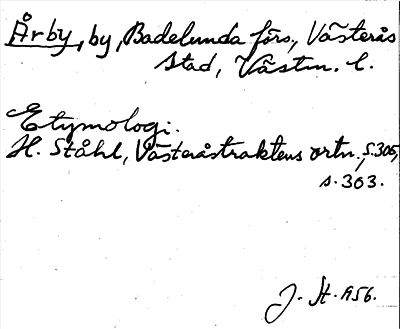 Årby, by, Badelunda förs., Västerås
stad, Västm. l.
Etymologi.
H. Ståhl, Västeråstraktens ortn., s. 305,
s. 303.
J. St. 1956.